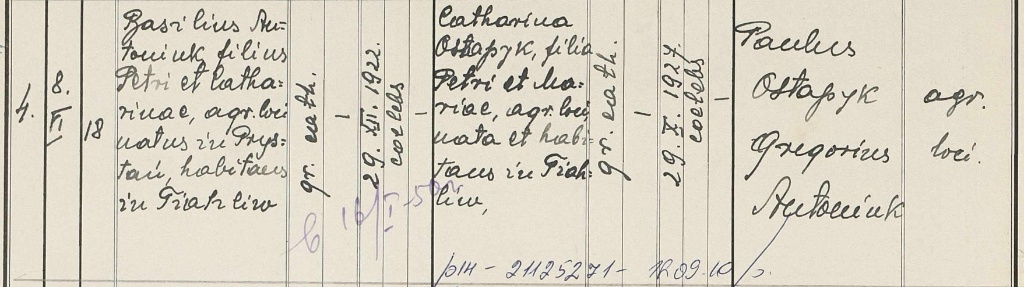 4.
8.
VI
18
Basilius An-
toniuk, filius
Petri et Catha-
rinae, agr. loci
natus in Prys-
tań, habitans
in Tiahliw
gr. cath.
—
29. XII. 1922.
coelebs
—
Catharina
Ostapyk, filia
Petri et Ma-
riae, agr. loci,
nata et habi-
tans in Tiah-
liw,
gr. cath.
—
29. X. 1927.
coelebs
—
Paulus
Ostapyk agr.
Gregorius loci.
Antoniuk
16/I-50